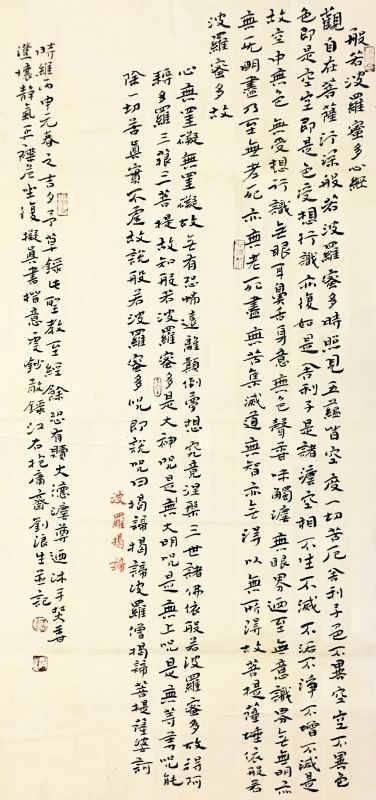 般若波羅蜜多心經
觀自在菩薩行深般若波羅蜜多時照見五蘊皆空度一切苦厄舍利子色不異空空不異色
色即是空空即是色受想行識亦復如是舍利子是諸灋空相不生不滅不垢不淨不增不減是
故空中無色無受想行識無眼耳鼻舌身意無色聲香味觸灋無眼界迺至無意識界無無明亦
無無明盡乃至無老死亦無老死盡無苦集滅道無智亦無得以無所得故菩提薩埵依般若
波羅蜜多故
心無罣礙無罣礙故無有恐怖遠離顛倒夢想究竟涅槃三世諸佛依般若波羅蜜多故得阿
耨多羅三藐三菩提故知般若波羅蜜多是大神呪是大明呪是無上呪是無等等呪能
除一切苦真實不虛故說般若波羅蜜多呪即說呪曰揭諦揭諦波羅僧揭諦菩提薩婆訶
波羅揭諦
時維丙申元春之吉夕予草錄此聖教至經餘恐有瀆大德灋尊迺沐手焚香
澄懷靜氣正襟危坐復擬真書楷意更鈔敬錄江右抱庸齋劉浪生並記